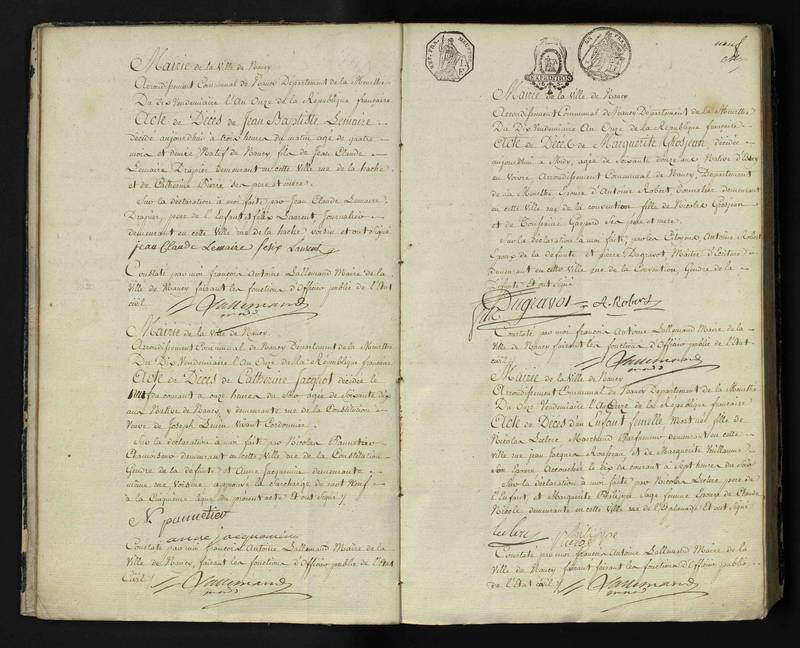 Mairie de la Ville de Nancy
Arrondissement Communal de Nancy Département de la Meurthe
Du dix Vendemiaire l'An Onze de la République française
Acte de Décès de Jean Baptiste Lemaire
décédé aujourd'hui à trois heures du matin agé de quatre
mois et demi Natif de Nancy fils de Jean Claude
Lemaire Drapier demeurant en cette Ville rue de la hache
et de Catherine Pierre ses pere et mere.
Sur la déclaration à moi faite par Jean Claude Lemaire
Drapier, pere de l'Enfant et felix Laurent Journalier
demeurant en cette Ville rue de la hache voisin et ont signé
jean Claude Lemaire felix Laurent
Constaté par moi françois Antoine Lallemand Maire de la
Ville de Nancy faisant les fonctions d'Officier public de l'Etat
civil
Lallemand
Mairie de la Ville de Nancy.
Arrondissement Communal de Nancy Département de la Meurthe
Du Dix Vendemiaire l'An Onze de la République française
Acte de Décès de Catherine Jacquot décédée le
neuf du courant à onze heures du soir agée de soixante dix
ans Native de Nancy y demeurante rue de la Constitution
Veuve de Joseph Vivant Cordonnier.
Sur la déclaration à moi faite par Nicolas Pannetier
demeurant en cette Ville rue de la Constitution
Gendre de la défunte et Anne Jacquemin demeurante
même rue Voisine, approuvé la surcharge du mot Neuf
à la Cinquième ligne du présent acte Et ont signé
N. pannetier
anne jacquemin
Constaté par moi françois Antoine Lallemand Maire de la
Ville de Nancy, faisant les fonctions d'Officier public de l'Etat
Civil
Lallemand
REP. FRA.
neuf
Mairie de la Ville de Nancy
Arrondissement Communal de Nancy Département de la Meurthe
Du Dix Vendemiaire An Onze de la République française
Acte de Décès de Marguerite Grosjean décédée
aujourd'hui à Midy, agée de soixante douze ans Native d'
en Voivre Arrondissement Communal de Nancy, Département
de la Meurthe, Epouse d'Antoine Robert Tonnelier demeurant
en cette Ville rue de la convention fille de Nicolas Grosjean
et de Toussaine Gaspard ses pere et mere.
Sur la déclaration à moi faite, par les Citoyens Antoine Robert
Epoux de la défunte et pierre Dugravot Maitre d'Ecriture
demeurant en cette Ville rue de la Convention, Gendre de la
défunte Et ont signé
Dugravot A. Robert
Constaté par moi françois Antoine Lallemand Maire de la
Ville de Nancy faisant les fonctions d'Officier public de l'Etat
civil
Lallemand
Mairie de la Ville de Nancy
Arrondissement Communal de Nancy Département de la Meurthe
Du Onze Vendemiaire l'An Onze de la République française
Acte de Décès d'un Enfant femelle Mort né fille de
Nicolas Leclerc Marchand Parfumeur demeurant en cette
ville rue jean jacques Rousseau, et de Marguerite Vuillaume
son Epouse Accouchée le dix du courant à Sept heures du Soir
Sur la déclaration à moi faite par Nicolas Leclerc pere de
l'Enfant, et Marguerite Philippe Sage femme Epouse de Claude
Nicole demeurante en cette Ville rue de l'Esplanade Et ont signé
Leclerc
Constaté par moi françois Antoine Lallemand Maire de la
Ville de Nancy faisant les fonctions d'Officier public
de l'Etat civil
Lallemand